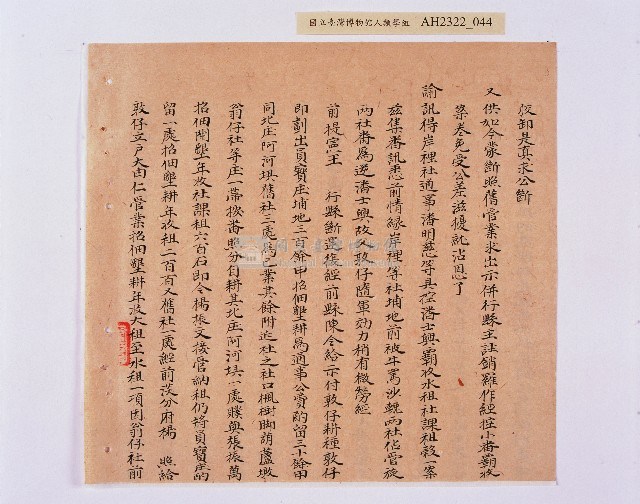 國立臺灣博物館人類學組 AH2322_044
股卸是真求公斷
又供如今蒙斷照舊管業求出示併行縣主註銷羅作經控小番霸收
案卷免受公差滋擾就沾恩了
諭訊得岸裡社通事潘明慈等具控潘士興霸收水租社課租穀一案
茲集番訊悉前情緣岸裡等社埔地前被牛罵沙轆两社佔管旋
两社番為逆潘士興故父敦仔隨軍効力稍有微勞經
前提憲王 行縣斷還後經前縣陳令給示付敦仔耕種敦仔
即劃出員寶庄埔地三百餘甲招佃墾耕為通事公費酌留三十餘甲
同北庄阿河垻舊社三處為己業其餘附近社之社口楓樹脚葫蘆墩
翁仔社等庄一帶按番照分自耕其北庄阿河垻一處賤與張振萬
招佃開墾年收社課租六百石即令楊振文接管納租仍將員寶庄酌
留一處招佃墾耕年收租二百石又舊社一處經前淡分府楊 照給
敦仔立戶大由仁管業招佃墾耕年收大租至水租一項因翁仔社前